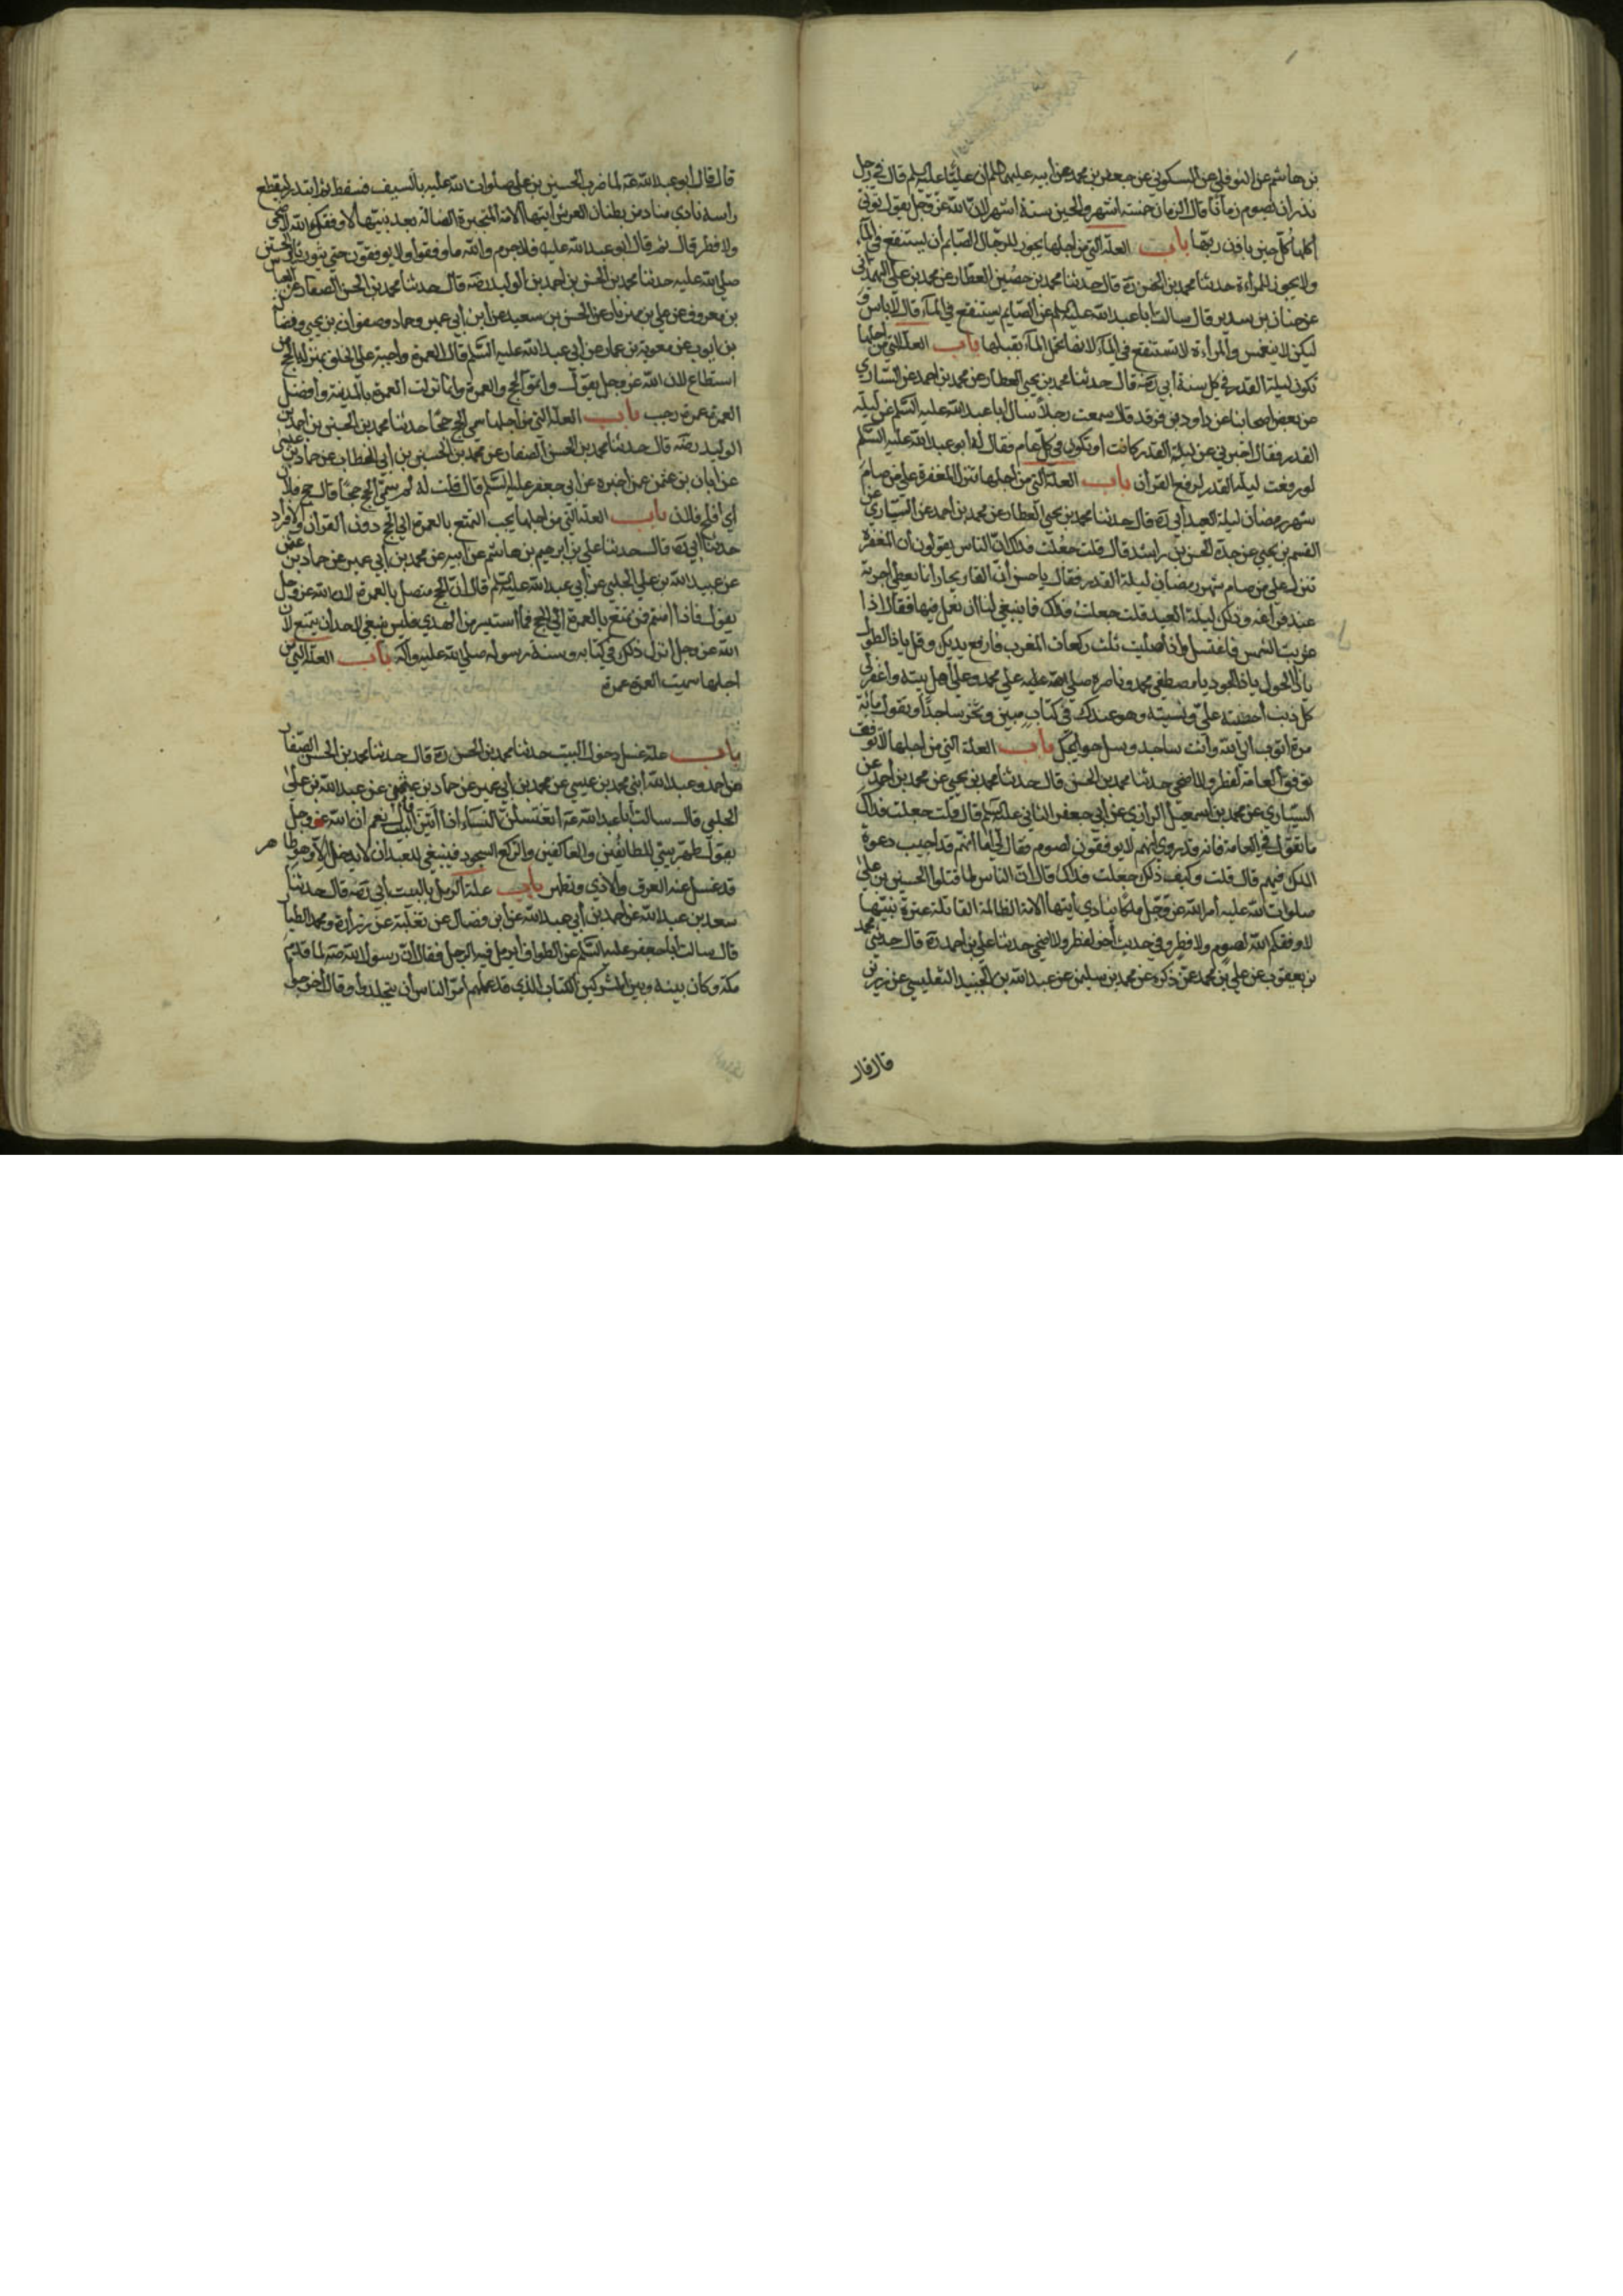 بن هاشم عن النوفلي عن السكوني عن جعفر بن محمد عن ابيه عليهما السلم ان عليا عليه السلم قال في رجل
نذر ان يصوم زمانا قال الزمان خمسة اشهر والحين ستة اشهر لان الله عز وجل يقول تؤتي
اكلها كل حين باذن ربها باب العلة التي من اجلها يجوز للرجال الصايم أن يستنقع في الماء
ولا يجوز للمراءة حدثنا محمد بن الحسن ره قال حدثنا محمد بن حصين العطار عن محمد بن علي الهمداني
عن حنان بن سدير قال سالت ابا عبد الله عليه السلم عن الصايم يستنقع في الماء قال لا باس
ليكن لا ينغمس والمراءة لا تستنقع في الماء لانها تحمل الماء بقبلها باب العلة التي من اجلها
تكون ليلة القدر في كل سنة ابي رضه قال حدثنا محمد بن يحيى العطار عن محمد بن احمد عن السياري
عن بعض اصحابنا عن داود بن فرقد قال سمعت رجلا سال ابا عبد الله عليه السلم عن ليلة
القدر فقال اخبرني عن ليلة القدر كانت او تكون في كل عام فقال له ابو عبد الله عليه السلم
لو رفعت ليلة القدر لرفع القرآن باب العلة التي من اجلها تنزل المغفرة على من صام
شهر رمضان ليلة العيد أبي ره قال حدثنا محمد بن يحيى العطار عن محمد بن احمد عن السياري عن
القسم بن يحيى عن جده الحسن بن راشد قال قلت جعلت فداك ان الناس يقولون أن المغفرة
تنزل على من صام شهر رمضان ليلة القدر فقال يا حسن ان القاريجار انما يعطى أجرته
عند فراغه وذلك ليلة العيد قلت جعلت فداك فما ينبغي لنا ان نعمل فيها فقال اذا
غربت الشمس فاغتسل واذا صليت ثلث ركعات المغرب فارفع يديك وقل يا ذا الطول
يا ذا الحول يا ذا الجود يا مصطفى محمد وناصره صلي الله عليه علي محمد وعلي أهل بيته واغفر لي
كل ذنب أحصيته علي ونسيته وهو عندك في كتاب مبين وتخر ساجدا وتقول مائة
مرة اتوب الى الله وأنت ساجد وسل حوايجك باب العلة التي من اجلها لا توفق
توفق العامة لفطر ولا اضحى حدثنا محمد بن الحسن قال حدثنا محمد بن يحيى عن محمد بن احمد عن
السياري عن محمد بن اسمعيل الرازي عن أبي جعفر الثاني عليه السلم قال قلت جعلت فداك
ما تقول في العامة فانه قد روي انهم لا يوفقون لصوم فقال لي اما انهم قد اجيب دعوة
الملك فيهم قال قلت وكيف ذلك جعلت فداك قال ان الناس لما قتلوا الحسين بن علي
صلوات الله عليه أمر الله عز وجل ملكا ينادي أيتها الامة الظالمة القاتلة عترة نبيها
لا وفقكم الله لصوم ولا فطر وفي حديث أخر لفطر ولا اضحى حدثنا علي بن احمد ره قال حدثني محمد
بن يعقوب عن علي بن محمد عمن ذكره عن محمد بن سليمن عن عبد الله بن الجنيد التفليسي عن رزين
قال قال
قال قال ابو عبد الله عه لما ضرب الحسين بن علي صلوات الله عليه بالسيف فسقط ثم ابتدر ليقطع
راسه نادى مناد من بطنان العرش ايتها الامة المتجبرة الضالة بعد نبيها لا وفقكم الله لاضحى
ولا فطر قال ثم قال ابو عبد الله عليه فلا جرم والله ما وفقوا ولا يوفقون حتى يثور ثائر الحسين
صلي الله عليه حدثنا محمد بن الحسن بن احمد بن الوليد رضه قال حدثنا محمد بن الحسن الصفار عن العباس
بن معروف عن علي بن مهزيار عن الحسن بن سعيد عن ابن أبي عمير وحماد وصفوان بن يحيى وفضالة
بن ايوب عن معوية بن عمار عن أبي عبد الله عليه السلم قال العمرة واجبة على الخلق بمنزلة الحج من
استطاع لان الله عز وجل يقول واتموا الحج والعمرة وانما نزلت العمرة بالمدينة وأفضل
العمرة عمرة رجب باب العلة التي من اجلها سمي الحج حجا حدثنا محمد بن الحسن بن احمد بن
الوليد رضه قال حدثنا محمد بن الحسن الصفار عن محمد بن الحسين بن أبي الخطاب عن حماد بن عيسى
عن ابان بن عثمن عمن اخبره عن ابي جعفر عليه السلم قال قلت له لم سمي الحج حجا قال حج فلان
اي افلح فلان باب العلة التي من اجلها يجب التمتع بالعمرة الى الحج دون القران والافراد
حدثنا ابي ره قال حدثنا علي بن ابرهيم بن هاشم عن ابيه عن محمد بن ابي عمير عن حماد بن عثمن
عن عبيد الله بن علي الحلبي عن أبي عبد الله عليه السلم قال ان الحج متصل بالعمرة لان الله عز وجل
يقول فاذا امنتم فمن تمتع بالعمرة الى الحج فما استيسر من الهدي فليس ينبغي لاحد أن يتمتع لان
الله عز وجل انزل ذلك في كتابه وسنة رسوله صلي الله عليه وآله باب العلة التي من
اجلها سميت العمرة عمرة
باب علة غسل دخول البيت حدثنا محمد بن الحسن ره قال حدثنا محمد بن الحسن الصفار
عن احمد وعبد الله ابني محمد بن عيسى عن محمد بن ابي عمير عن حماد بن عثمن عن عبيد الله بن علي
الحلبي قال سالت أبا عبد الله عه أتغتسلن النساء اذا اتين البيت قال نعم ان الله عز وجل
يقول طهر بيتي للطائفين والعاكفين والركع السجود فينبغي للعبد ان لا يدخل الا وهو طاهر
قد غسل عنه العرق والاذى وتطهر باب علة الرمل بالبيت أبي رضه قال حدثنا
سعد بن عبد الله عن احمد بن أبي عبد الله عن ابن فضال عن ثعلبة عن زرارة ومحمد الطيار
قال سالت ابا جعفر عليه السلم عن الطواف ايرمل فيه الرجل فقال ان رسول الله صه لما قدم
مكة وكان بينه وبين المشركين الكتاب الذي قد علمتم أمر الناس أن يتجلدوا وقال أخرجوا